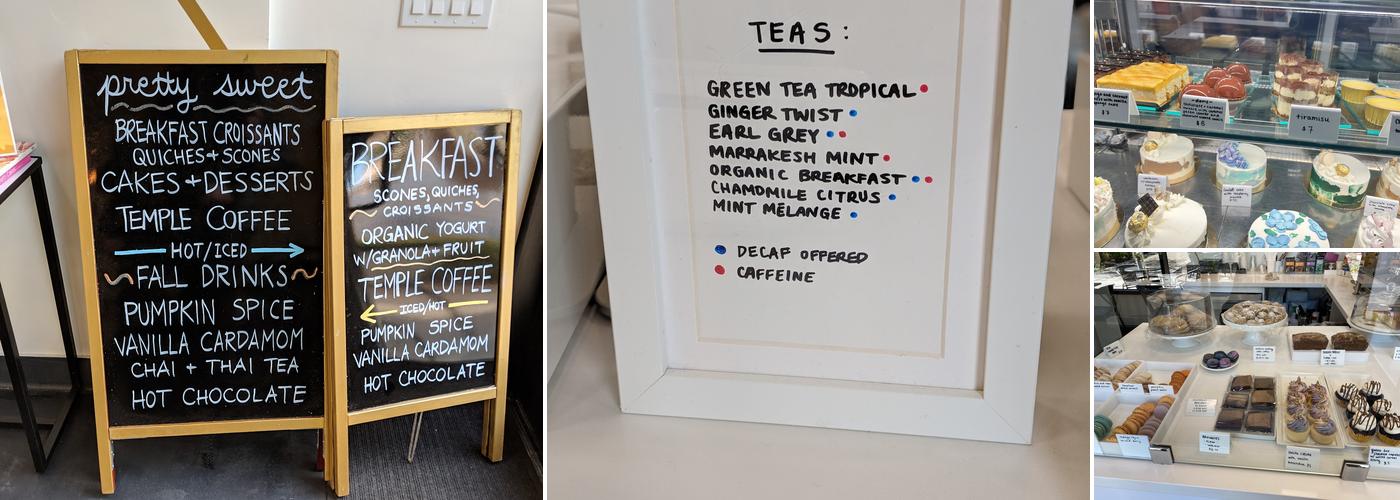 pretty sweet
BREAKFAST CROISSANTS
QUICHES + SCONES
CAKES + DESSERTS
TEMPLE COFFEE
HOT/ICED
FALL DRINKS
PUMPKIN SPICE
VANILLA CARDAMOM
CHAI + THAI TEA
HOT CHOCOLATE
BREAKFAST
SCONES, QUICHES,
CROISSANTS
ORGANIC YOGURT
W/GRANOLA + FRUIT
TEMPLE COFFEE
ICED/HOT
PUMPKIN SPICE
VANILLA CARDAMOM
HOT CHOCOLATE
TEAS:
GREEN TEA TROPICAL
GINGER TWIST
EARL GREY
MARRAKESH MINT
ORGANIC BREAKFAST
CHAMOMILE CITRUS
MINT MELANGE
DECAF OFFERED
CAFFEINE
$7
$6
tiramisu
$7